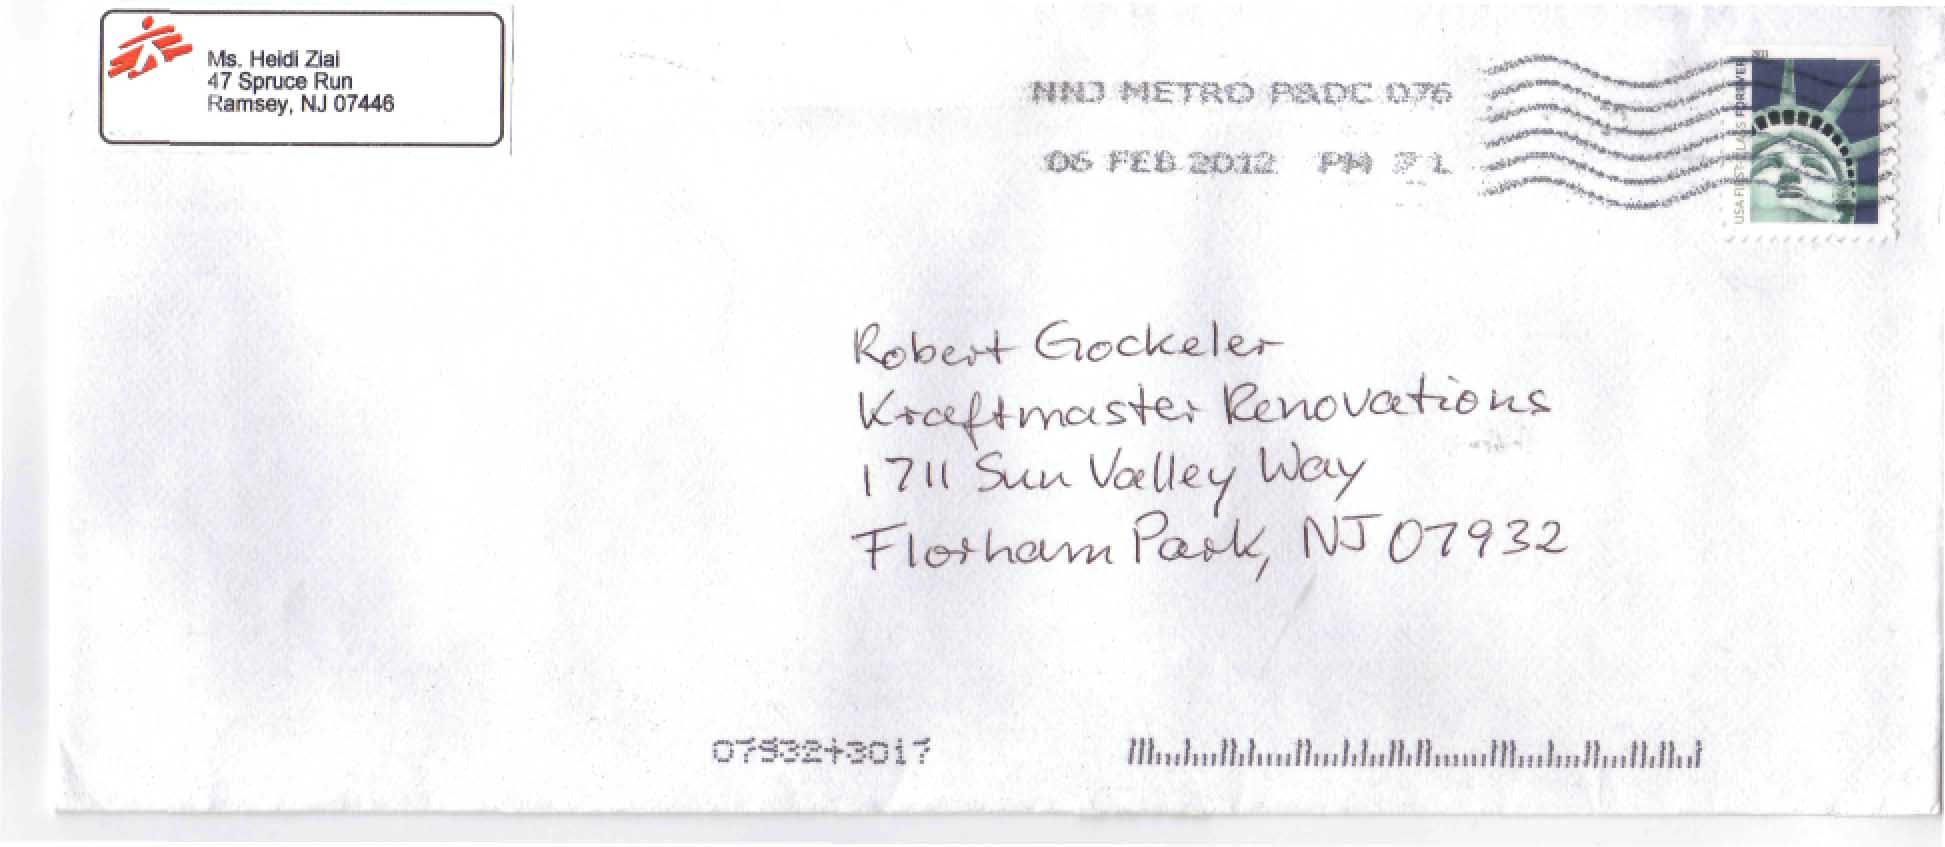 Ms. Heidi Ziai
47 Spruce Run
Ramsey, NJ 07446
NNJ METRO P&DC 076
06 FEB 2012 PM 7 L
USA FIRST-CLASS FOREVER
2011
Robert Gockeler
Kraftmaster Renovations
1711 Sun Valley Way
Florham Park, NJ 07932
07932+3017